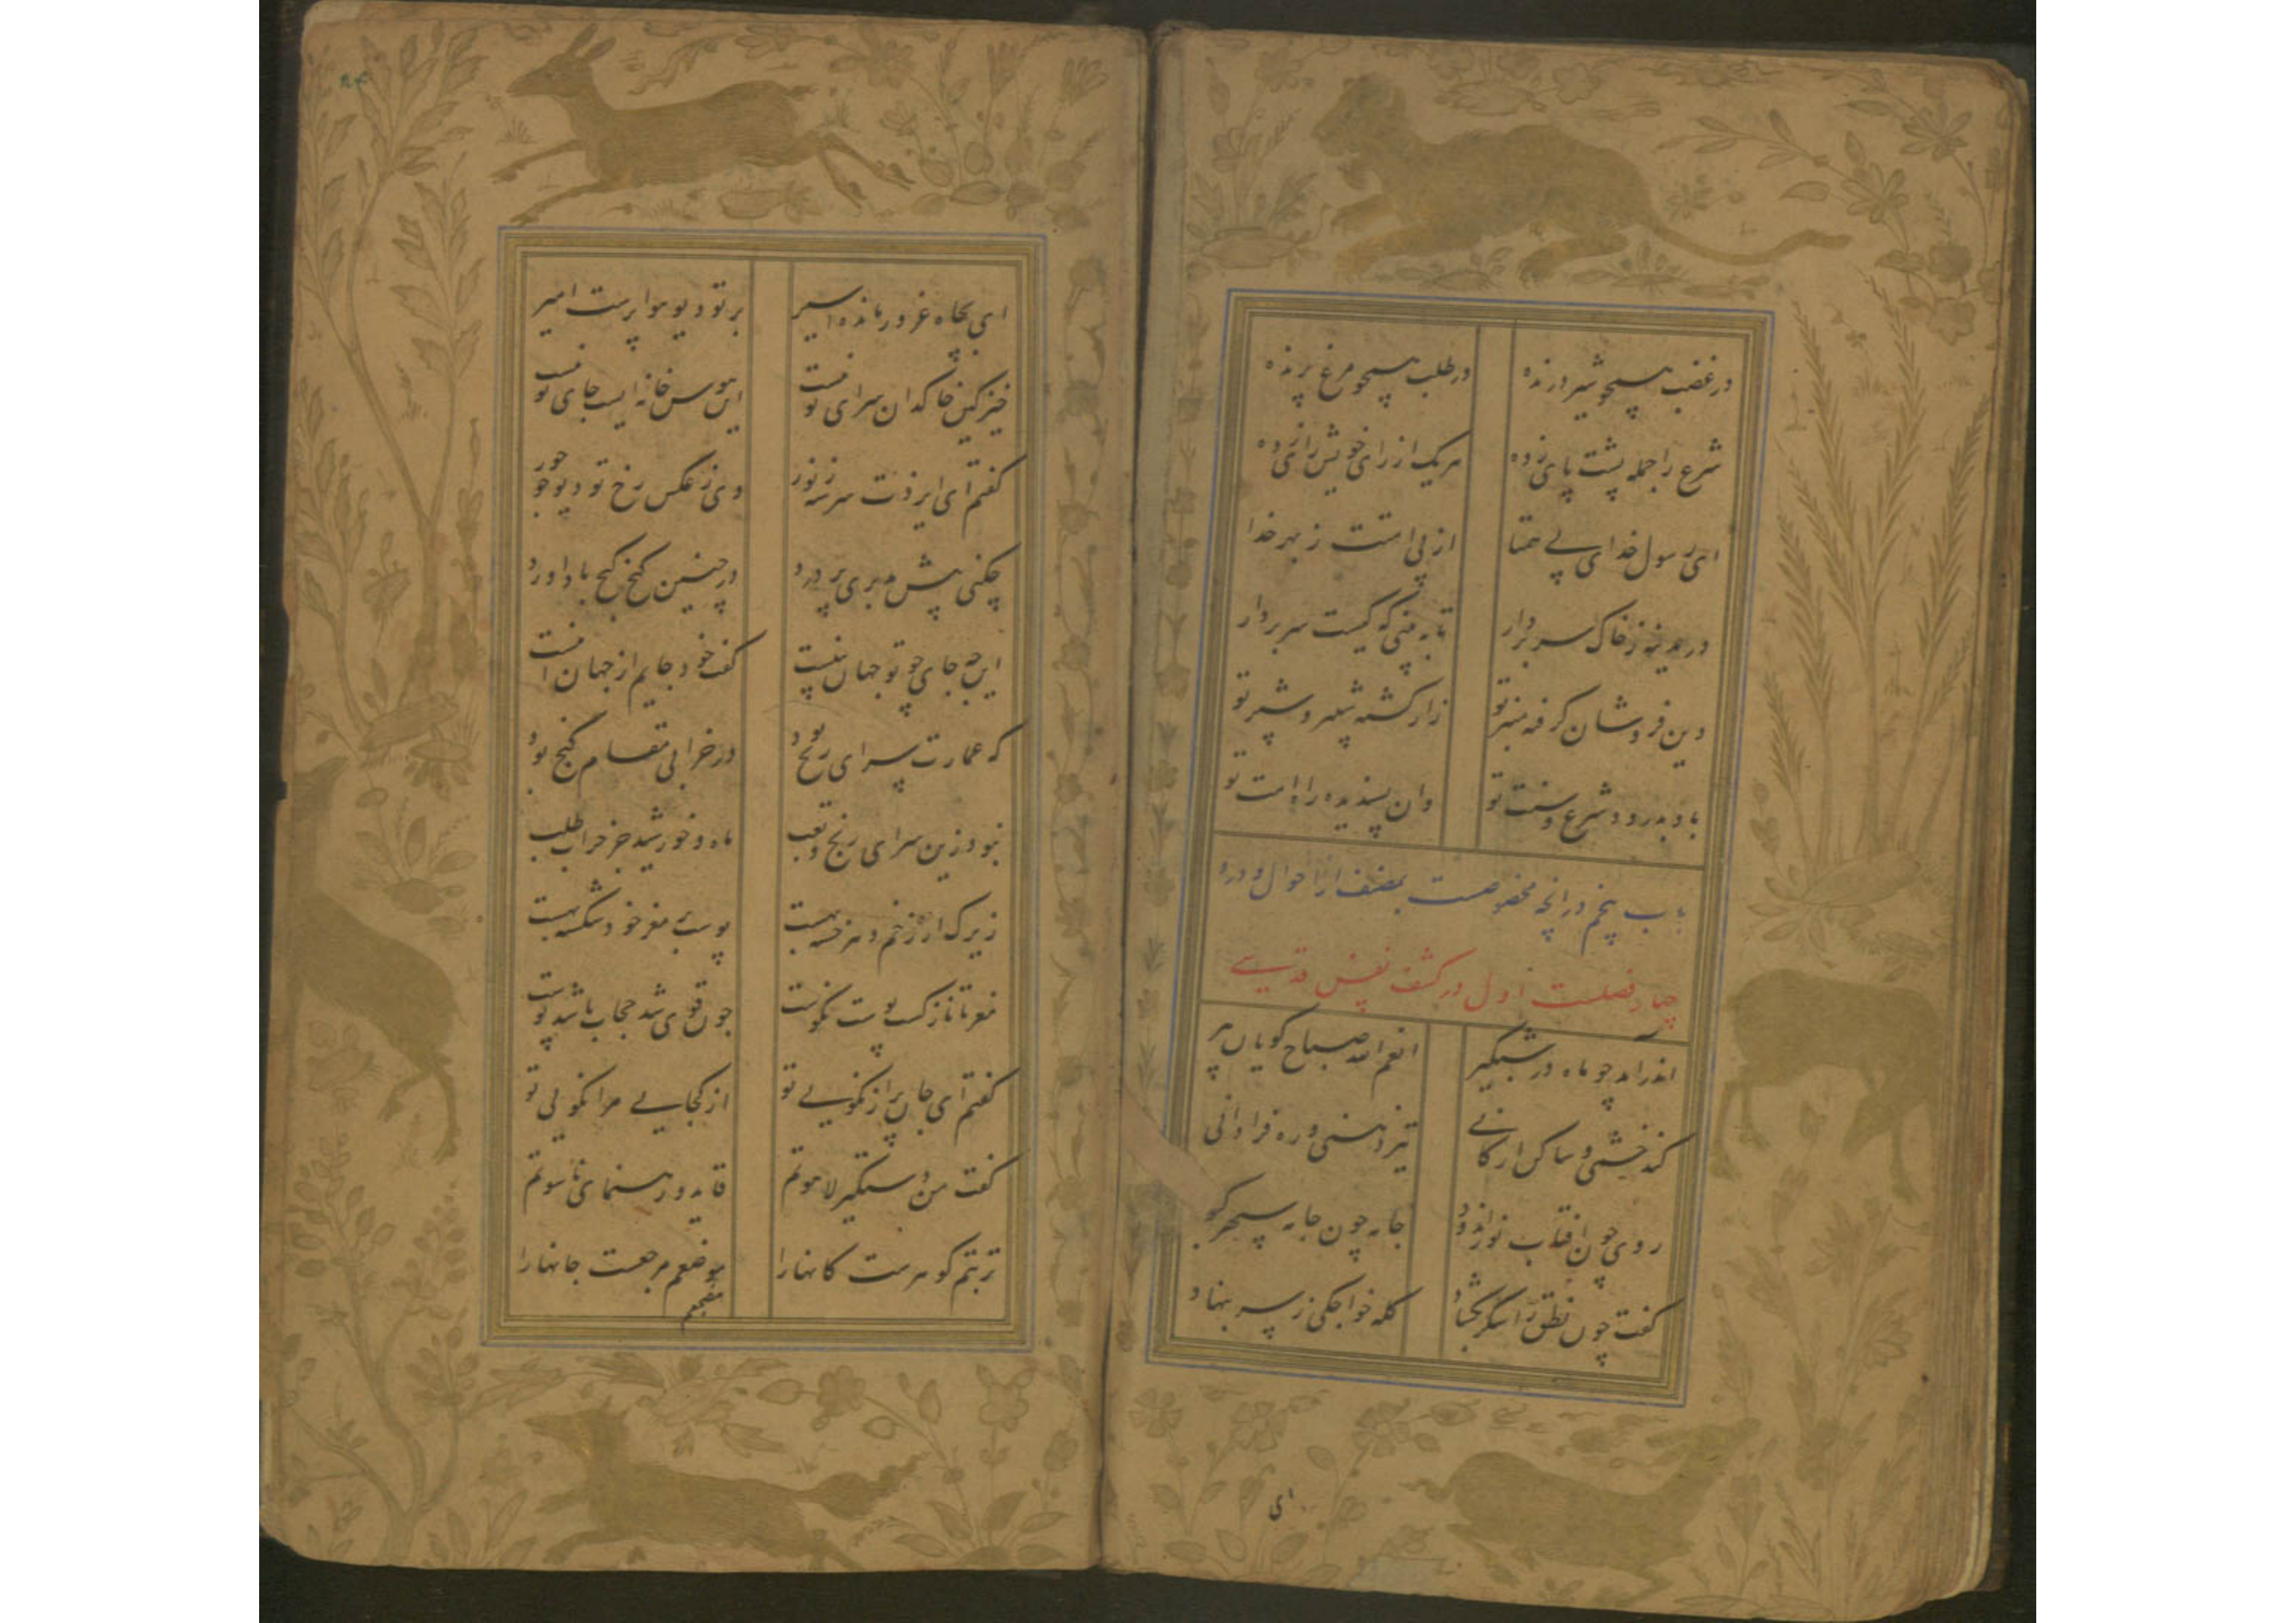 در غضب همچو شیر درنده در طلب همچو مرغ پرنده
شرع را جمله پشت پای زده هر یک از رای خویش رای زده
ای رسول خدای بی همتا از پی امتت ز بهر خدا
در مدینه ز خاک سر بردار تا به بینی که کیست سر بردار
دین فروشان گرفته منبر تو زار کشته شبیر و شبر تو
باد بدرود شرع و سنت تو وان پسندیده راه امت تو
باب پنجم در آنچه مخصوصست بمصنف از احوال و درو
چهار فصلست اول در کشف نفس قدسی
اندر آمد چو ماه در شبگیر انعم الله صباح گویان پیر
کند خشمی و ساکن ارکانی تیز ذهنی و ره فراوانی
روی چون افتاب نور اندود جامه چون جامه سپهر کبود
گفت چون نطق را شکر بگشاد کله خواجگی ز سر بنهاد
ای
ای بچاه غرور مانده اسیر بر تو دیو هوا پرست امیر
خیز کین خاکدان سرای تو نیست این هوس خانه ایست جای تو نیست
گفتم ای ایزدت سرشته ز نور وی ز عکس رخ تو دیو چو حور
چکنی پیش مدبری پر درد در چنین کنج گنج باداورد
این چه جای چو تو جهان بینیست گفت خود جایم از جهان اینست
که عمارت سرای رنج بود در خرابی مقام گنج بود
نبود زین سرای رنج و تعب ماه و خورشید جز خراب طلب
زیرک از زخم دهر خسته بهست پوست بی مغز خود شکسته بهست
مغز تا نازکست پوست نکوست چون قوی شد حجاب باشد پوست
گفتم ای جان پر از نکویی تو از کجایی مرا نگویی تو
گفت من دستگیر لاهوتم قاید و رهنمای ناسوتم
تربتم گوهرست کانها را موضعم مرجعست جانها را